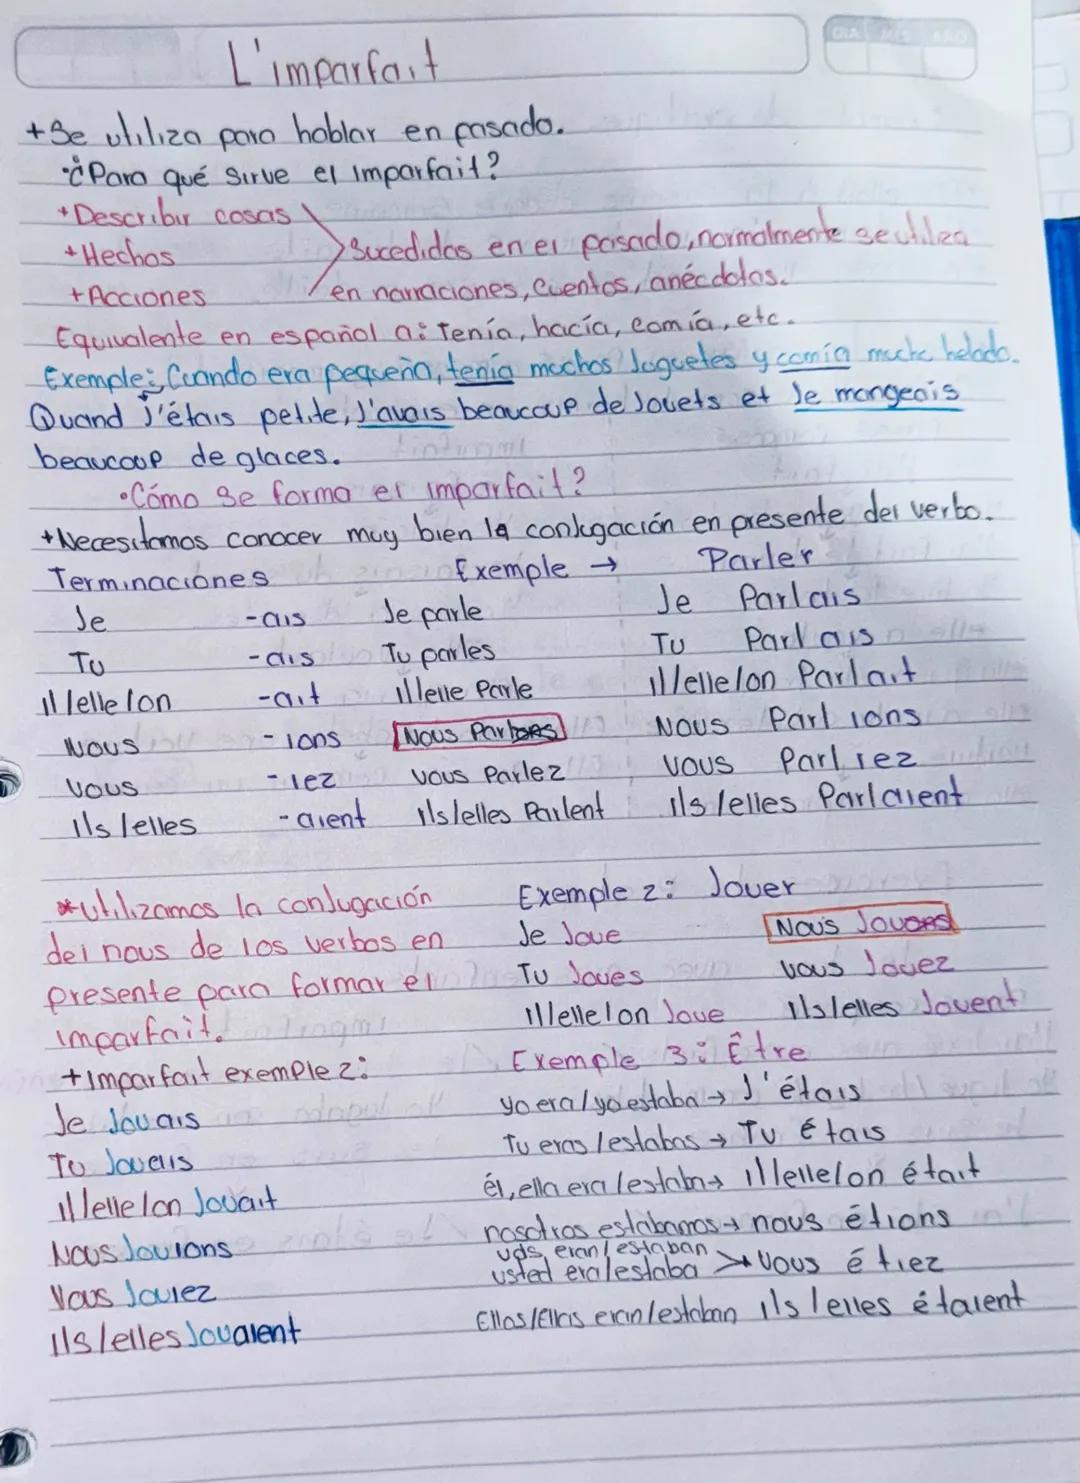 DIA MES AÑO
L'imparfait
+Se utiliza para hablar en pasado.
·¿Para qué sirve el imparfait?
+Describir cosas
+Hechos
+Acciones
Sucedidas en el pasado, normalmente se utiliza
en narraciones, cuentos, anécdotas.
Equivalente en español a: Tenía, hacía, comía, etc.
Exemple: Cuando era pequeña, tenía muchos Juguetes y comía mucho helado.
Quand J'étais petite, J'avais beaucoup de Jouets et Je mangeais
beaucoup de glaces.
•Cómo se forma el imparfait?
+Necesitamos conocer muy bien la conjugación en presente del verbo.
Terminaciones Exemple → Parler
Je -ais Je parle Je Parlais
Tu -ais Tu parles Tu Parlais
Il/elle/on -ait il/elle Parle il/elle/on Parlait
Nous -ions Nous Parlons Nous Parlions
Vous -iez Vous Parlez Vous Parliez
Ils/elles -aient ils/elles Parlent ils/elles Parlaient
*Utilizamos la conjugación
del nous de los verbos en
presente para formar el
imparfait.
+Imparfait exemple 2:
Je Jouais
Tu Jouais
il/elle/on Jouait
Nous Jouions
Vous Jouiez
Ils/elles Jouaient
Exemple 2: Jouer
Je Joue Nous Jouons
Tu Joues Vous Jouez
Il/elle/on Joue Ils/elles Jouent
Exemple 3: Être
yo era/yo estaba → J'étais
Tu eras/estabas → Tu étais
él, ella era/estaba → il/elle/on était
nosotros estábamos → nous étions
uds, eran/estaban
usted era/estaba → Vous étiez
Ellos/Ellas eran/estaban ils/elles étaient